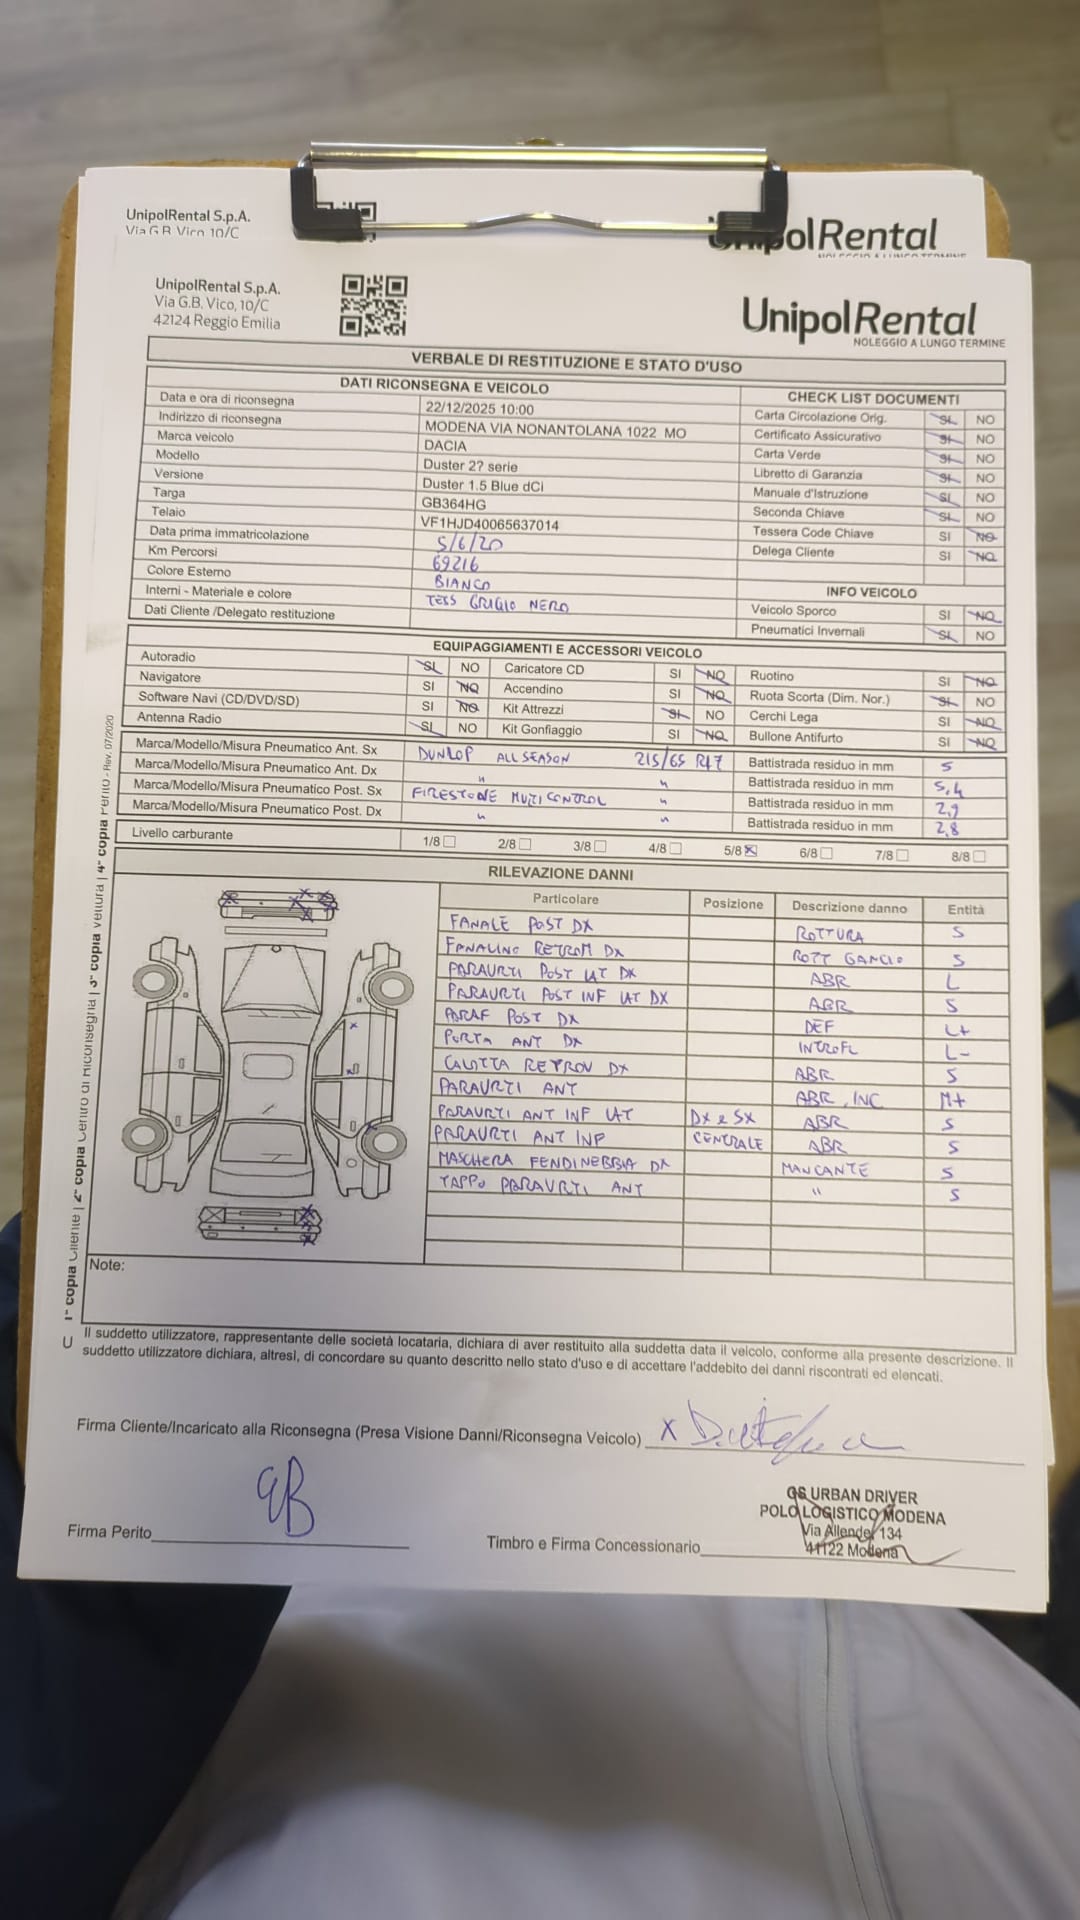 UnipolRental S.p.A.
Via G.B. Vico, 10/C
olRental
UnipolRental S.p.A.
Via G.B. Vico, 10/C
42124 Reggio Emilia
UnipolRental
NOLEGGIO A LUNGO TERMINE
VERBALE DI RESTITUZIONE E STATO D'USO
DATI RICONSEGNA E VEICOLO
Data e ora di riconsegna 22/12/2025 10:00
Indirizzo di riconsegna MODENA VIA NONANTOLANA 1022 MO
Marca veicolo DACIA
Modello Duster 2? serie
Versione Duster 1.5 Blue dCi
Targa GB364HG
Telaio VF1HJD40065637014
Data prima immatricolazione 5/6/20
Km Percorsi 69216
Colore Esterno BIANCO
Interni - Materiale e colore TESS GRIGIO NERO
Dati Cliente /Delegato restituzione
CHECK LIST DOCUMENTI
Carta Circolazione Orig. SI NO
Certificato Assicurativo SI NO
Carta Verde SI NO
Libretto di Garanzia SI NO
Manuale d'Istruzione SI NO
Seconda Chiave SI NO
Tessera Code Chiave SI NO
Delega Cliente SI NO
INFO VEICOLO
Veicolo Sporco SI NO
Pneumatici Invernali SI NO
EQUIPAGGIAMENTI E ACCESSORI VEICOLO
Autoradio SI NO Caricatore CD SI NO Ruotino SI NO
Navigatore SI NO Accendino SI NO Ruota Scorta (Dim. Nor.) SI NO
Software Navi (CD/DVD/SD) SI NO Kit Attrezzi SI NO Cerchi Lega SI NO
Antenna Radio SI NO Kit Gonfiaggio SI NO Bullone Antifurto SI NO
Marca/Modello/Misura Pneumatico Ant. Sx DUNLOP ALL SEASON 215/65 R17 Battistrada residuo in mm 5
Marca/Modello/Misura Pneumatico Ant. Dx " " Battistrada residuo in mm 5,4
Marca/Modello/Misura Pneumatico Post. Sx FIRESTONE MULTICONTROL " Battistrada residuo in mm 2,9
Marca/Modello/Misura Pneumatico Post. Dx " " Battistrada residuo in mm 2,8
Livello carburante 1/8 2/8 3/8 4/8 5/8 6/8 7/8 8/8
RILEVAZIONE DANNI
Particolare Posizione Descrizione danno Entità
FANALE POST DX ROTTURA S
FANALINO RETROM DX ROTT GANCIO S
PARAURTI POST LAT DX ABR L
PARAURTI POST INF LAT DX ABR S
PARAF POST DX DEF L+
PORTA ANT DX INTROFL L-
CALOTTA RETROV DX ABR S
PARAURTI ANT ABR, INC M+
PARAURTI ANT INF LAT DX e SX ABR S
PARAURTI ANT INF CENTRALE ABR S
MASCHERA FENDINEBBIA DX MANCANTE S
TAPPO PARAURTI ANT " S
Note:
1ª copia Cliente | 2ª copia Centro di Riconsegna | 3ª copia Vettura | 4ª copia Perito - Rev. 07/2020
Il suddetto utilizzatore, rappresentante delle società locataria, dichiara di aver restituito alla suddetta data il veicolo, conforme alla presente descrizione. Il
suddetto utilizzatore dichiara, altresì, di concordare su quanto descritto nello stato d'uso e di accettare l'addebito dei danni riscontrati ed elencati.
Firma Cliente/Incaricato alla Riconsegna (Presa Visione Danni/Riconsegna Veicolo) X
Firma Perito
Timbro e Firma Concessionario
GS URBAN DRIVER
POLO LOGISTICO MODENA
Via Allende, 134
41122 Modena